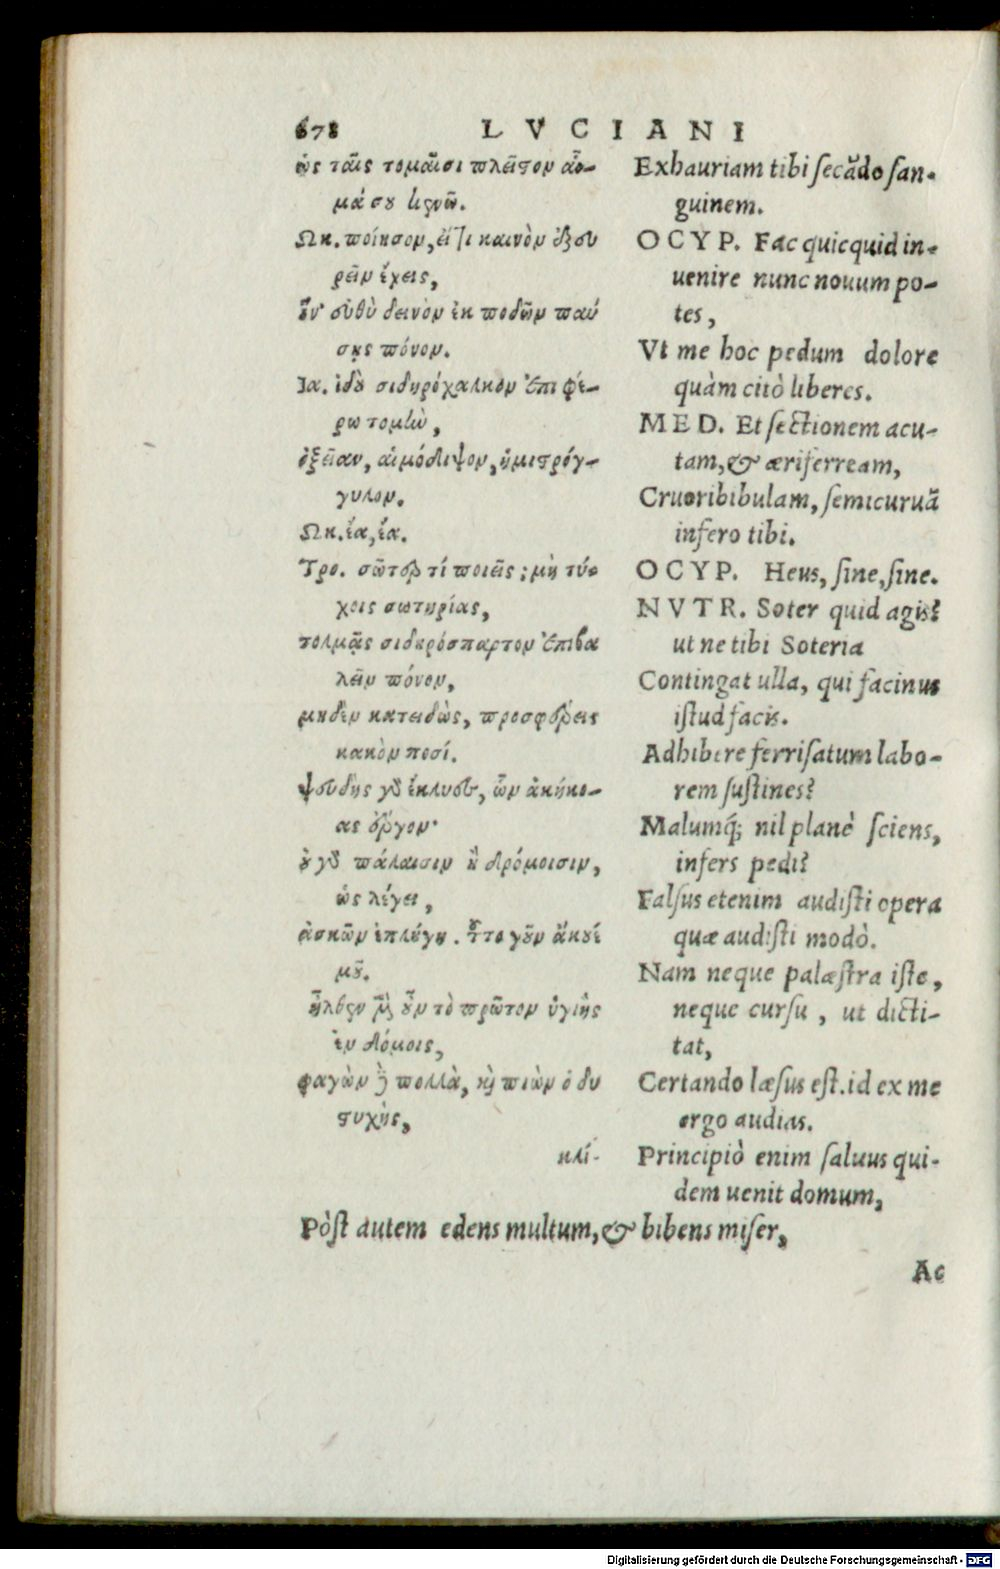 678 LVCIANI
ὡς ταῖς τομαῖσι πλεῖστον αἷ-
μά σου κενῶ.
Ωκ. ποίησον, εἴ τι καινὸν ἐξευ
ρεῖν ἔχεις,
ἵν' εὐθὺ δεινὸν ἐκ ποδῶν παύ
σῃς πόνον.
Ια. ἰδοὺ σιδηρόχαλκον ἐπιφέ-
ρω τομὴν,
ὀξεῖαν, αἱμόδιψον, ἡμιστρόγ-
γυλον.
Ωκ. ἔα, ἔα.
Τρο. σῶτερ τί ποιεῖς; μὴ τύ-
χοις σωτηρίας,
τολμᾷς σιδηρόσπαρτον ἐπιβα
λεῖν πόνον,
μηδὲν κατειδὼς, προσφέρεις
κακὸν ποσί.
ψευδὴς γὰρ ἔκλυες, ὧν ἀκήκο-
ας ἔργον·
οὐ γὰρ πάλαισιν ἢ δρόμοισιν,
ὡς λέγει,
ἀσκῶν ἐπλύγη. τοῦτο γοῦν ἄκουέ
μου.
ἦλθεν μὲν οὖν τὸ πρῶτον ὑγιὴς
ἐν δόμοις,
φαγὼν δὲ πολλὰ, καὶ πιὼν ὁ δυ
στυχὴς,
κλί-
Exhauriam tibi secādo san-
guinem.
OCYP. Fac quicquid in-
uenire nunc nouum po-
tes,
Vt me hoc pedum dolore
quàm citò liberes.
MED. Et sectionem acu-
tam, & æriferream,
Cruoribibulam, semicuruā
infero tibi.
OCYP. Heus, sine, sine.
NVTR. Soter quid agis?
ut ne tibi Soteria
Contingat ulla, qui facinus
istud facis.
Adhibere ferrisatum labo-
rem sustines?
Malumq́; nil planè sciens,
infers pedi?
Falsus etenim audisti opera
quæ audisti modò.
Nam neque palæstra iste,
neque cursu, ut dicti-
tat,
Certando læsus est. id ex me
ergo audias.
Principiò enim saluus qui-
dem uenit domum,
Pòst autem edens multum, & bibens miser,
Ac
Digitalisierung gefördert durch die Deutsche Forschungsgemeinschaft - DFG